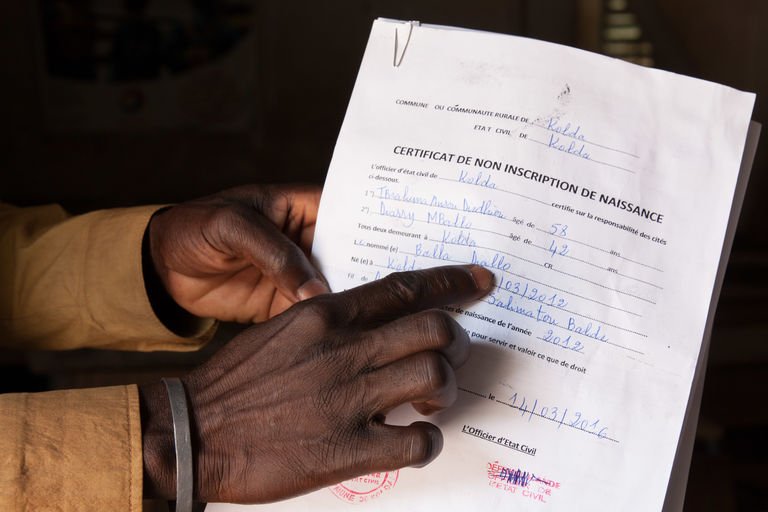 COMMUNE OU COMMUNAUTE RURALE DE Kolda
ETAT CIVIL DE Kolda
CERTIFICAT DE NON INSCRIPTION DE NAISSANCE
L'officier d'état civil de Kolda certifie sur la responsabilité des cités
ci-dessous.
1°) Ibrahima âgé de 58 ans
2°) Diassy MBallo âgé de 42 ans
Tous deux demeurant à Kolda CR
Le nommé (e) Balla Diallo
Né (e) à Kolda /03/2012
Fil de Salimatou Balde
tes de naissance de l'année 2012
pour servir et valoir ce que de droit
le 14/03/2016
L'Officier d'Etat Civil
ETAT CIVIL